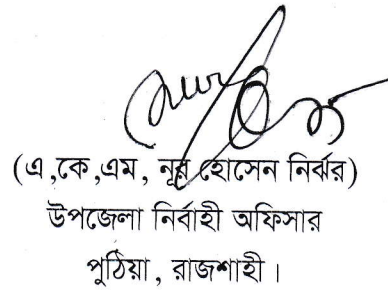 (এ,কে,এম, নূর হোসেন নির্ঝর)
উপজেলা নির্বাহী অফিসার
পুঠিয়া, রাজশাহী।